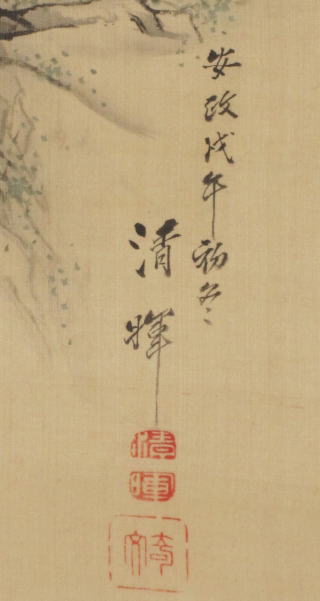 安政戊午初冬
清暉
清
暉